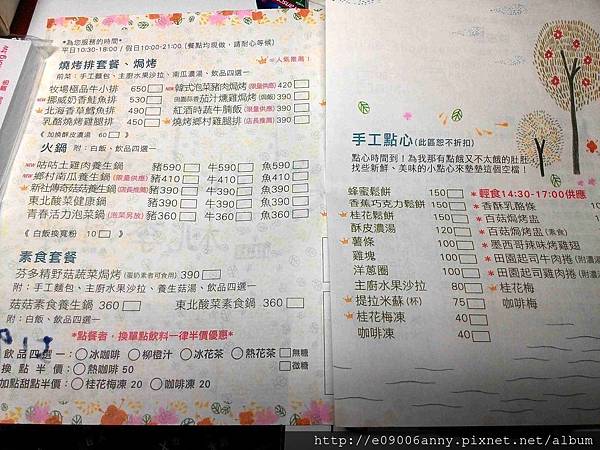 *為您服務的時間*
平日10:30-18:00 / 假日10:00-21:00 (餐點均現做，請耐心等候)
燒烤排套餐、焗烤 =人氣推薦！
前菜：手工麵包、主廚水果沙拉、南瓜濃湯、飲品四選一
牧場極品牛小排 650
NEW 韓式泡菜豬肉焗烤(限量供應) 420
NEW 挪威奶香鮭魚排 530
田園蒜香茄汁燻雞焗烤(焗飯) 390
北海香草鱈魚排 490
紅酒時蔬牛腩飯(限量供應) 390
乳酪燒烤雞腿排 450
燒烤鄉村雞腿排(店長推薦) 390
《 加換酥皮濃湯 60 》
火鍋 附：白飯、飲品四選一
NEW 咕咕土雞肉養生鍋 豬590 牛590 魚590
NEW 鄉村南瓜養生鍋(限量供應) 豬410 牛410 魚410
新社傳奇菇菇養生鍋(店長推薦) 豬390 牛390 魚390
東北酸菜健康鍋 豬390 牛390 魚390
青香活力泡菜鍋(泡菜另放) 豬360 牛360 魚360
《 白飯換寬粉 10 》
素食套餐
芬多精野菇蔬菜焗烤(蛋奶素者可食用) 390
附：手工麵包、主廚水果沙拉、養生菇湯、飲品四選一
菇菇素食養生鍋 360 東北酸菜素食鍋 360
附：白飯、飲品四選一
*點餐者，換單點飲料一律半價優惠*
飲品四選一：○冰咖啡 ○柳橙汁 ○冰花茶 ○熱花茶 無糖
換點半價：○熱咖啡 50 微糖
加點甜點半價：○桂花梅凍 20 ○咖啡凍 20
手工點心(此區恕不折扣)
點心時間到！為我那有點餓又不太餓的肚肚
找些新鮮、美味的小點心來墊墊這個空檔！
蜂蜜鬆餅 150
香蕉巧克力鬆餅 150
桂花鬆餅 150
酥皮濃湯 120
薯條 100
雞塊 100
洋蔥圈 100
主廚水果沙拉 80
提拉米蘇(杯) 75
桂花梅凍 40
咖啡凍 40
*輕食14:30-17:00供應
*香酥乳酪條
*百菇焗烤盅
*百菇焗烤盅(素食)
*墨西哥辣味烤雞翅
*田園起司牛肉捲(附
*田園起司雞肉捲(附
桂花梅
咖啡梅
http://e09006anny.pixnet.net/album